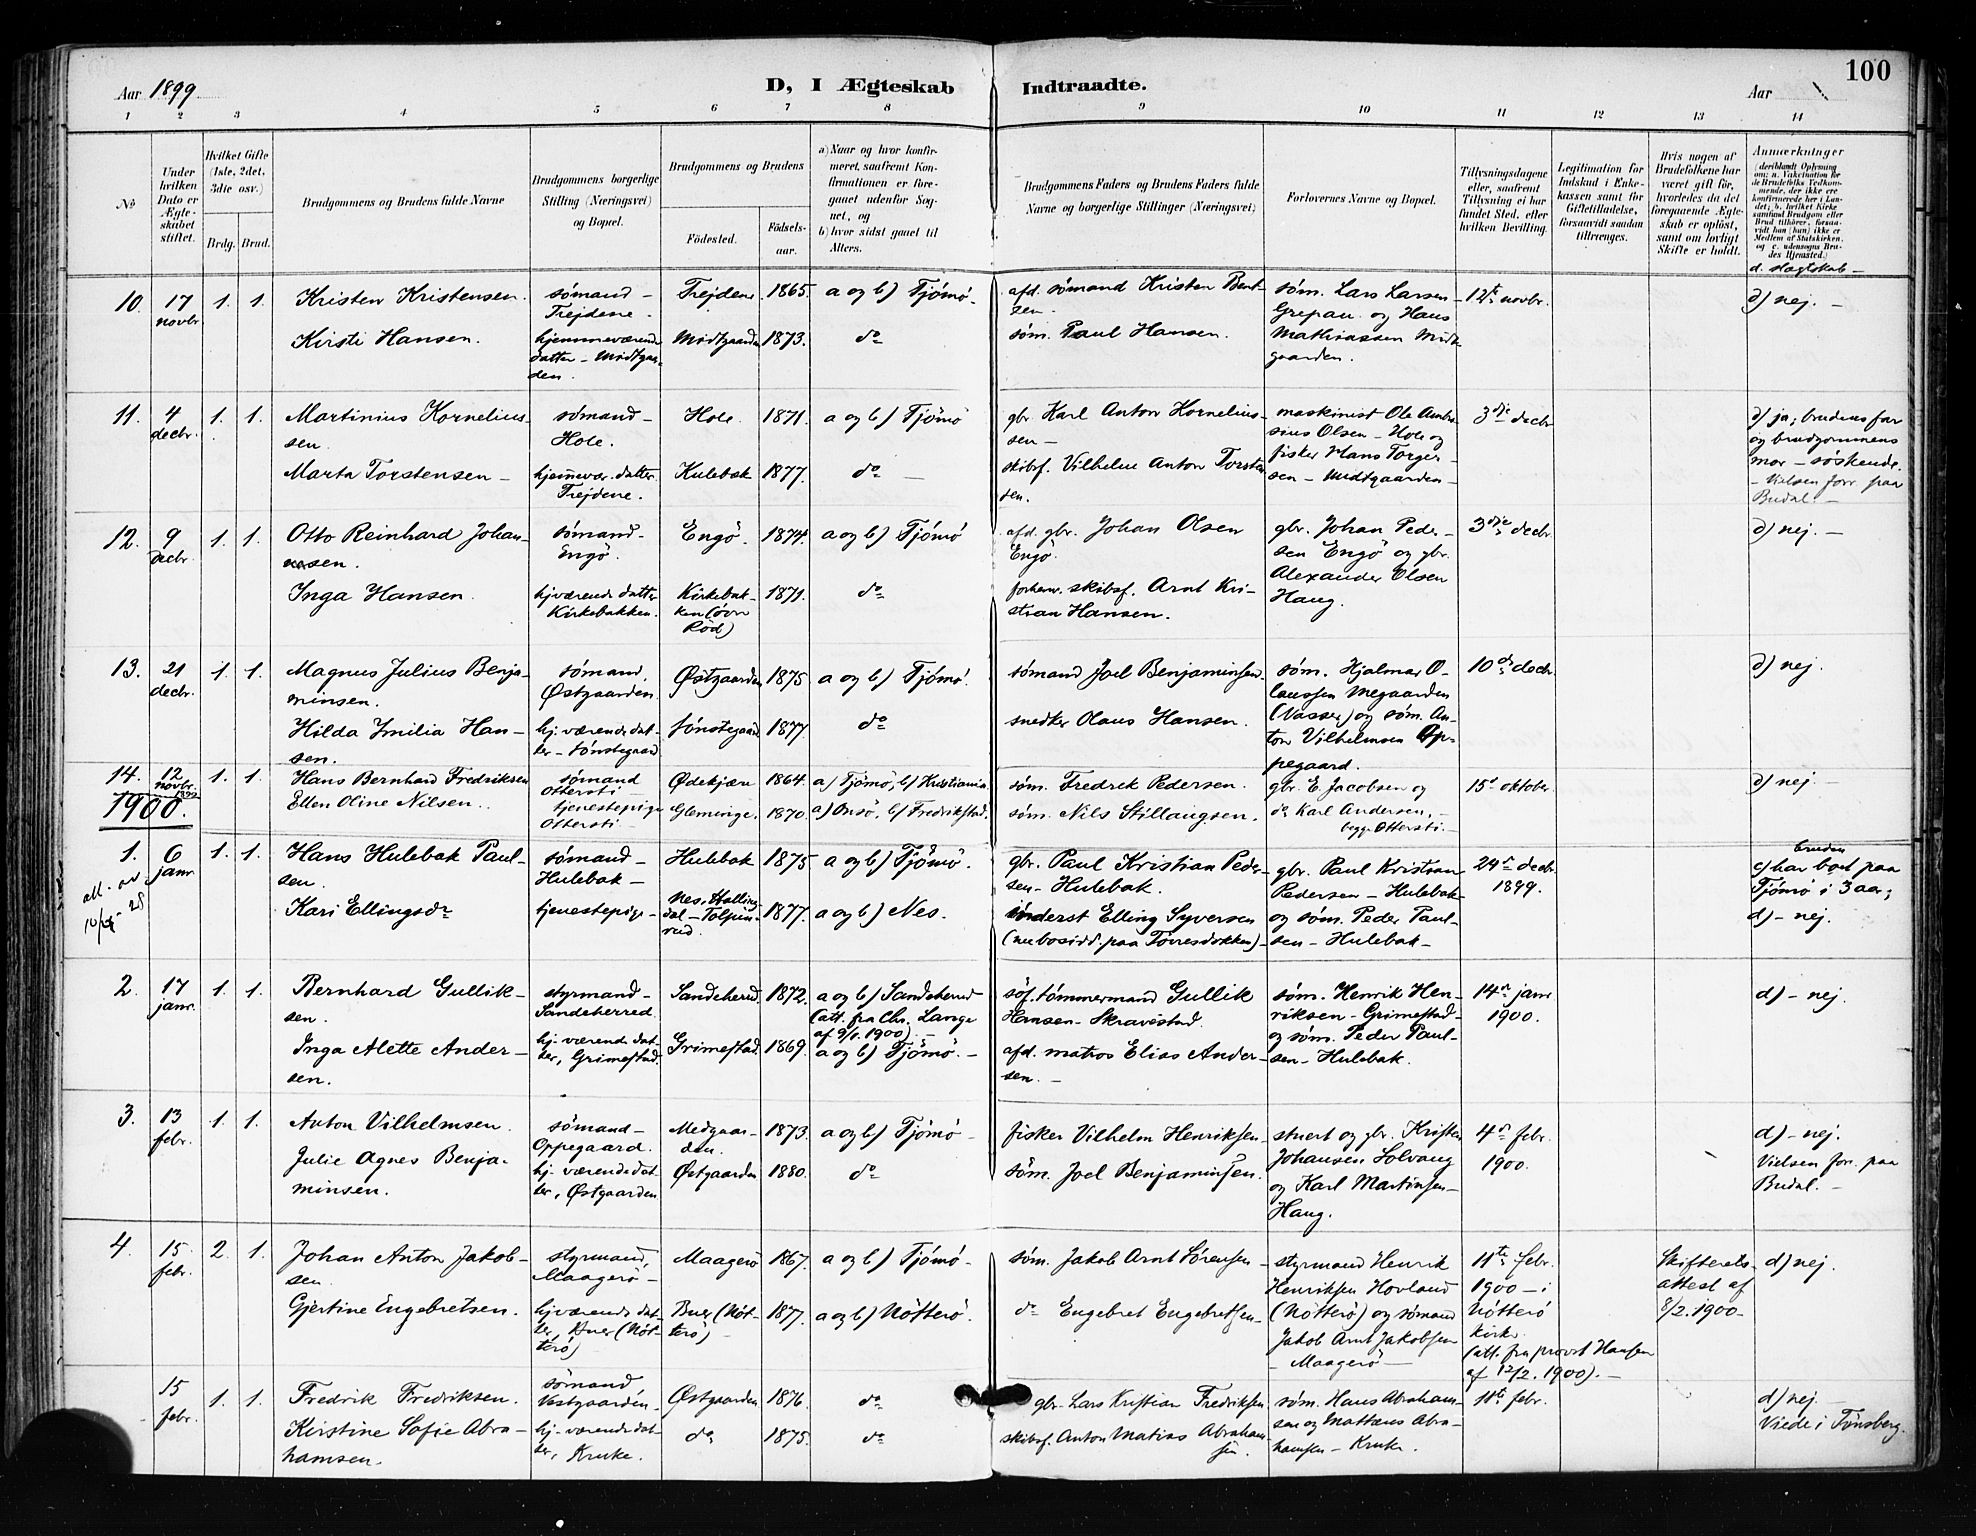 100
Aar 1899
D, I Ægteskab Indtraadte.
Aar
1 2 3 4 5 6 7 8 9 10 11 12 13 14
No
Under hvilken Dato er Ægteskabet stiftet.
Hvilket Gifte (1ste, 2det, 3die osv.)
Brdg. Brud.
Brudgommens og Brudens fulde Navne
Brudgommens borgerlige Stilling (Næringsvei) og Bopæl.
Brudgommens og Brudens
Fødested.
Fødsels-aar.
a) Naar og hvor konfirmeret, saafremt Konfirmationen er foregaaet udenfor Sognet, og
b) hvor sidst gaaet til Alters.
Brudgommens Faders og Brudens Faders fulde Navne og borgerlige Stillinger (Næringsvei)
Forlovernes Navne og Bopæl.
Tillysningsdagene eller, saafremt Tillysning ei har fundet Sted, efter hvilken Bevilling.
Legitimation for Indskud i Enkekassen samt for Giftetilladelse, forsaavidt saadan tiltrænges.
Hvis nogen af Brudefolkene har været gift før, hvorledes da det foregaaende Ægteskab er opløst, samt om lovligt Skifte er holdt.
Anmærkninger
(deriblandt Oplysning om: a. Vakcination for de Brudefolks Vedkommende, der ikke ere konfirmerede her i Landet; b. hvilket Kirkesamfund Brudgom eller Brud tilhører, forsaavidt han (hun) ikke er Medlem af Statskirken, og c. udensogns Brudes Hjemsted.)
d. slægtskab –
10. 17 novbr 1. 1.
Kristen Kristensen.
Kirsti Hansen.
sømand – Trejdene.
hjemmeværende datter – Midtgaarden.
Trejdene 1865. a og b) Tjømø.
Midtgaarden 1873. do
afd. sømand Kristen Bentsen.
søm. Paul Hansen.
søm. Lars Larsen – Grepan. og Hans Mathiassen Midtgaarden.
12te novbr.
d) nej. –
11. 4 decbr. 1. 1.
Martinius Kornelius-
sen.
Marta Torstensen –
sømand – Hole.
hjemmevær. datter Trejdene.
Hole 1871. a og b) Tjømø
Hulebak 1877. do –
gbr. Karl Anton Kornelius-
sen –
skibsf. Vilhelm Anton Torsten-
sen.
maskinist Ole Ambrosius Olsen – Hole og fisker Hans Torgersen – Midtgaarden –
3die decbr
d) ja; brudens far og brudgommens mor – søskende.
– Vielsen forr. paa Budal. –
12. 9 decbr. 1. 1.
Otto Reinhard Johan-
nesen.
Inga Hansen.
sømand – Engø.
hjværende datter Kirkebakken.
Engø. 1874. a og b) Tjømø
Kirkebakken (øvre Rød) 1871. do
afd. gbr. Johan Olsen Engø.
forhenv. skibsf. Arnt Kristian Hansen.
gbr. Johan Pedersen Engø og gbr. Alexander Olsen Haug.
3die decbr.
d) nej. –
13. 21 decbr. 1. 1.
Magnus Julius Benja-
minsen.
Hilda Imilia Han-
sen.
sømand, Østgaarden.
hj. værende datter – Sønstegaard
Østgaarden 1875 a og b) Tjømø.
Sønstegaard 1877. do
sømand Joel Benjaminsen.
snedker Olaus Hansen.
søm. Hjalmar Olaussen Megaarden (Vasser) og søm. Anton Vilhelmsen Oppegaard.
10de decbr.
d) nej.
14. 12 novbr. 1899 1. 1.
Hans Bernhard Fredriksen
Ellen Oline Nilsen.
sømand Ottersti
tjenestepige Ottersti –
Ødekjære 1864. a) Tjømø, b) Kristiania.
Gleminge. 1870. a) Onsø, b) Fredrikstad.
søm. Fredrik Pedersen.
søm. Nils Stillaugsen.
gbr. E. Jacobsen og do Karl Andersen, – begge Ottersti. –
15de oktober.
d) nej. –
1900.
1. 6 janr. 1. 1.
att. av
Hans Hulebak Paul-
sen.
Kari Ellingsdr
sømand – Hulebak –
tjenestepige –
Hulebak 1875 a og b) Tjømø.
Nes, Hallingdal – 1877. a og b) Nes.
gbr. Paul Kristian Peder-
sen – Hulebak.
inderst Elling Syversen
(nu bosidd. paa Torresdokken) –
gbr. Paul Kristian Pedersen – Hulebak og søm. Peder Paulsen – Hulebak –
24de decbr 1899.
bruden
c) har boet paa Tjømø i 3 aar;
d) – nej.
2. 17 janr. 1. 1.
Bernhard Gullik-
sen.
Inga Alette Ander-
sen.
styrmand – Sandeherred.
hj. værende datter, Grimestad.
Sandeherred. 1872. a og b) Sandeherred (att. fra Chr. Lange af 9/1. 1900). –
Grimestad. 1869. a og b) Tjømø. –
søf. tømmermand Gullik Hansen – Skravestad.
afd. matros Elias Ander-
sen. –
søm. Henrik Henriksen – Grimestad – og søm. Peder Paulsen – Hulebak.
14de janr 1900.
d) – nej.
3. 13 febr. 1. 1.
Anton Vilhelmsen.
Julie Agnes Benja-
minsen.
sømand – Oppegaard.
hj. værende datter, Østgaarden
Medgaarden. 1873. a og b) Tjømø –
Østgaarden 1880. do
fisker Vilhelm Henriksen –
søm. Joel Benjaminsen.
stuert og gbr. Kristen Johansen Solvang og Karl Martinsen – Haug.
4de febr. 1900.
d) – nej.
Vielsen forr. paa Budal. –
4. 15 febr. 2. 1.
Johan Anton Jakob-
sen.
Gjertine Engebretsen.
styrmand, Maagerø –
hjværende datter, Buer (Nøtterø)
Maagerø 1867. a og b) Tjømø.
Buer (Nøtterø) – 1877. a og b) Nøtterø.
søm. Jakob Arnt Sørensen –
do Engebret Engebretsen –
styrmand Henrik Henriksen Hovland (Nøtterø) og sømand Jakob Arnt Jakobsen – Maagerø –
11te febr. 1900 – i Nøtterø kirke.
(att. fra provst Hansen af 12/2. 1900). –
Skifteretsattest af 8/2. 1900 –
d) nej.
15 febr. 1. 1.
Fredrik Fredriksen.
Kirstine Sofie Abra-
hamsen.
sømand Vestgaarden –
hj. værende datter, Kruke.
Østgaarden 1876. do
do 1875. do
gbr. Lars Kristian Fredriksen
skibsf. Anton Matias Abraham-
sen.
søm. Hans Abrahamsen og Mattæus Abrahamsen – Kruke.
11te febr.
d) nej –
Viede i Tønsberg.